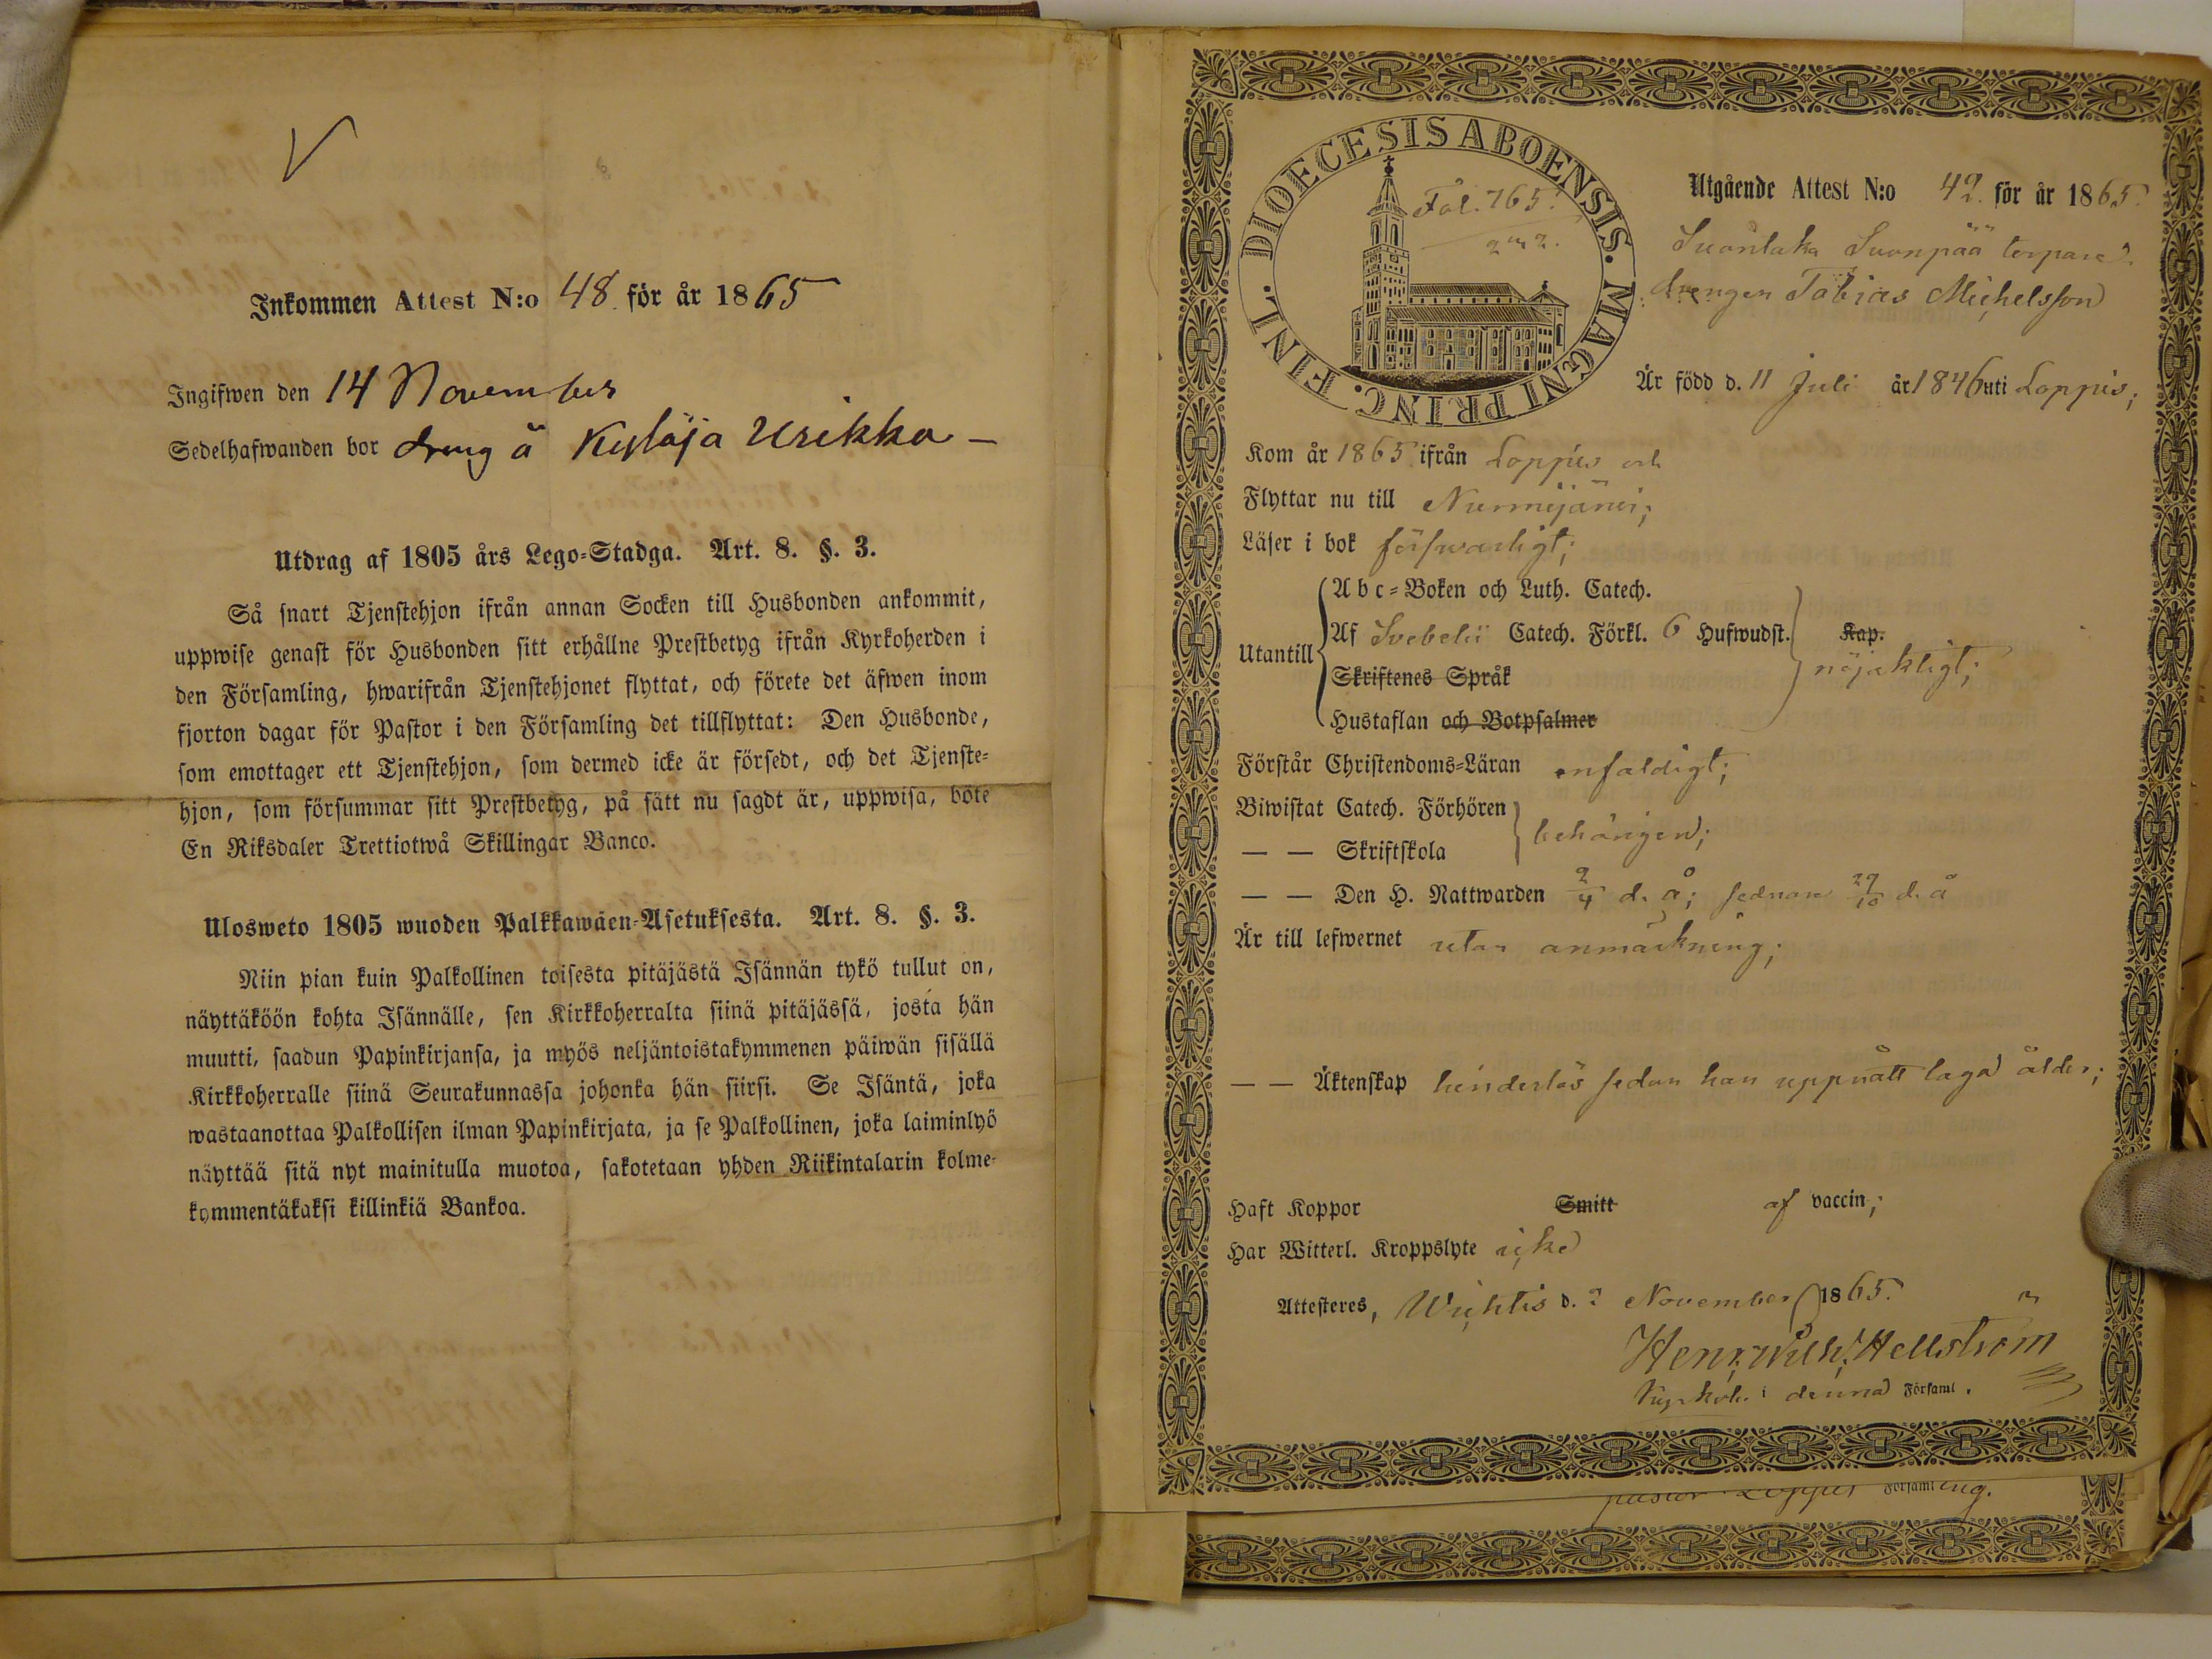 Inkommen Attest N:o 48 för år 1865
Ingifwen den 14 November
Sedelhafwanden bor dreng å Kyläja Urikka —
Utdrag af 1805 års Lego-Stadga. Art. 8. §. 3.
Så snart Tjenstehjon ifrån annan Socken till Husbonden ankommit,
uppwise genast för Husbonden sitt erhållne Prestbetyg ifrån Kyrkoherden i
den Församling, hwarifrån Tjenstehjonet flyttat, och förete det äfwen inom
fjorton dagar för Pastor i den Församling det tillflyttat: Den Husbonde,
som emottager ett Tjenstehjon, som dermed icke är försedt, och det Tjenste-
hjon, som försummar sitt Prestbetyg, på sätt nu sagdt är, uppwisa, böte
En Riksdaler Trettiotwå Skillingar Banco.
Ulosweto 1805 wuoden Palkkawäen-Asetuksesta. Art. 8. §. 3.
Niin pian kuin Palkollinen toisesta pitäjästä Isännän tykö tullut on,
näyttäköön kohta Isännälle, sen Kirkkoherralta siinä pitäjässä, josta hän
muutti, saadun Papinkirjansa, ja myös neljäntoistakymmenen päiwän sisällä
Kirkkoherralle siinä Seurakunnassa johonka hän siirsi. Se Isäntä, joka
wastaanottaa Palkollisen ilman Papinkirjata, ja se Palkollinen, joka laiminlyö
näyttää sitä nyt mainitulla muotoa, sakotetaan yhden Riikintalarin kolme-
kymmentäkaksi killinkiä Bankoa.
DIOECESIS ABOENSIS. MAGNI PRINC. FINL.
Fol. 765.
Utgående Attest N:o 42. för år 1865.
Suontaka Suonpää torpare
drengen Tobias Michelsson
Är född d. 11 Juli år 1846 uti Loppis;
Kom år 1865 ifrån Loppis och
Flyttar nu till Nurmijärvi;
Läser i bok förswarligt;
Utantill
Abc-Boken och Luth. Catech.
Af Svebelii Catech. Förkl. 6 Hufwudst. Kap.
Skriftenes Språk nöjaktigt;
Hustaflan och Botpsalmer
Förstår Christendoms-Läran enfaldigt;
Biwistat Catech. Förhören
— — Skriftskola behörigen;
— — Den H. Nattwarden 2/4 d. å; sednare 29/10 d. å
Är till lefwernet utan anmärkning;
— — Äktenskap hinderlös sedan han uppnått laga ålder;
Haft Koppor Smitt af vaccin;
Har Witterl. Kroppslyte icke
Attesteres, Wichtis d. 2 November 1865.
Henr. Wilh. Hellström
Kyrkoh. i denna Församl.
pastor Loppis Församling.